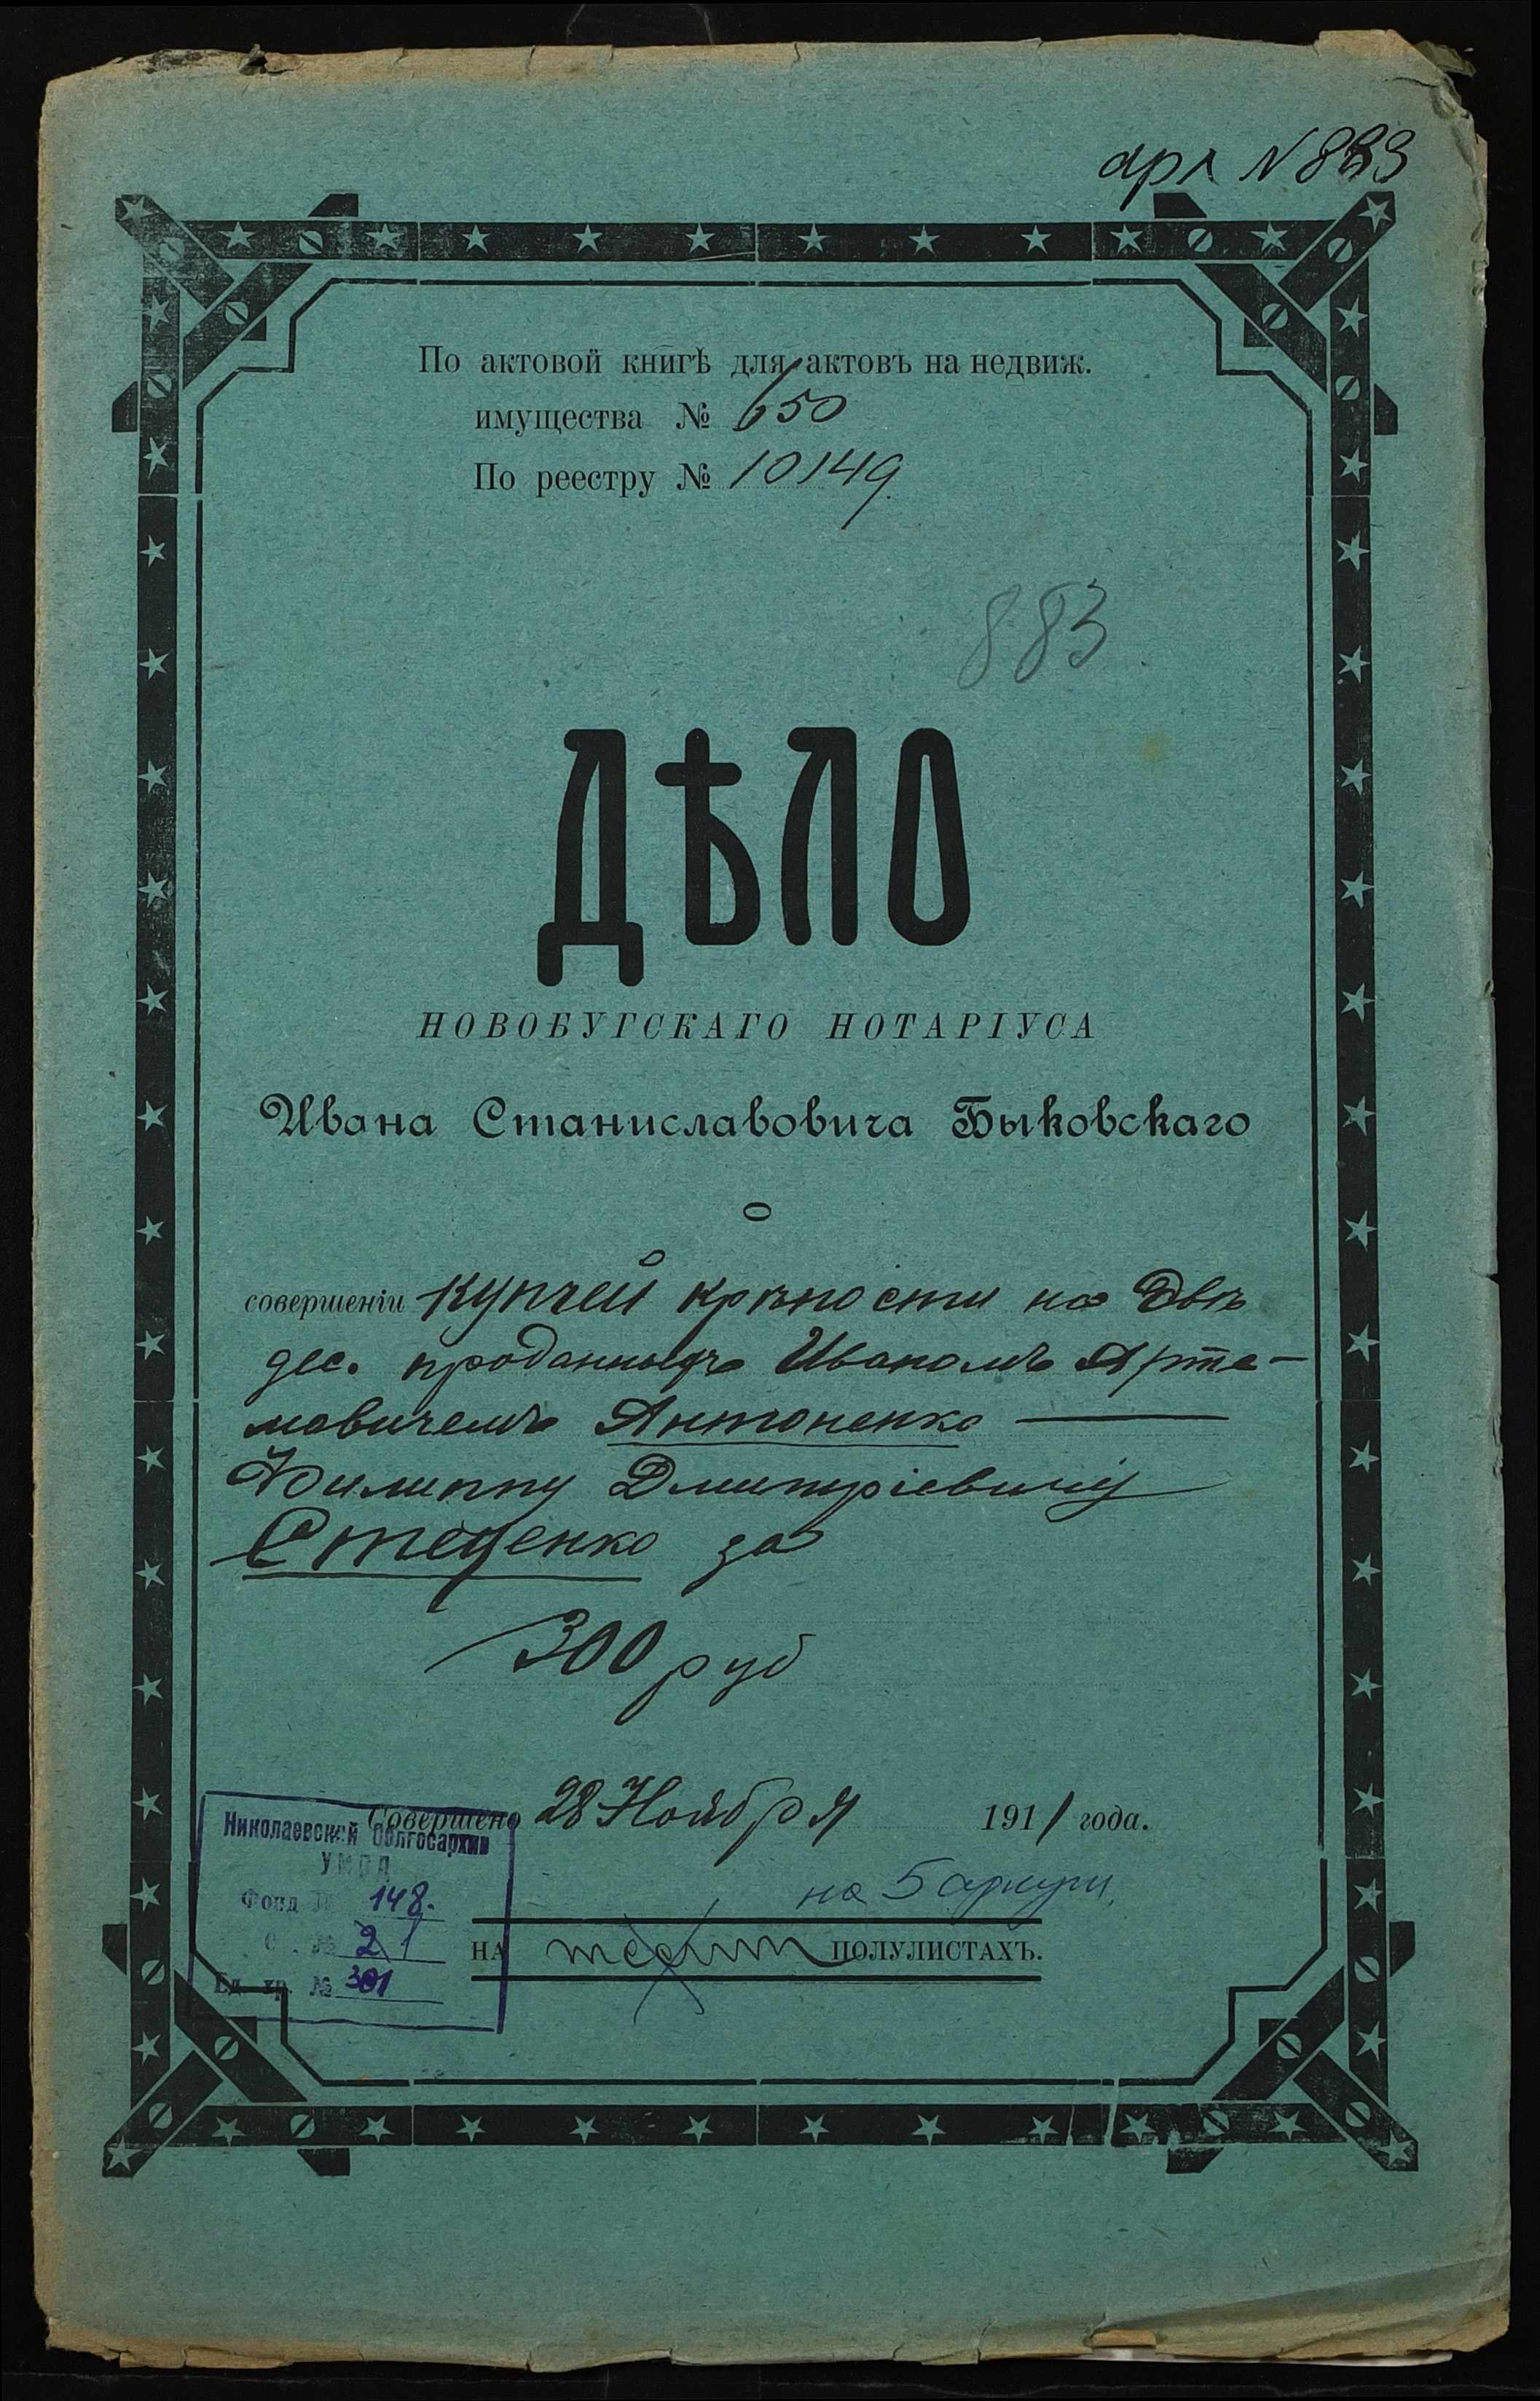 арх №883
По актовой книгѣ для актовъ на недвиж.
имущества № 650
По реестру № 10149
883
ДѢЛО
НОВОБУГСКАГО НОТАРІУСА
Ивана Станиславовича Быковскаго
О
совершеніи купчей крѣпости на Двѣ
дес. проданныхъ Иваномъ Арте-
мовичемъ Антоненко
Филиппу Дмитріевичу
Стеценко за
300 руб
Совершено 28 Ноября 1911 года.
Николаевский Облгосархив
УМВД
Фонд № 148.
О . № 21
Ед. хр. № 301
на 5 аркуш.
НА ПОЛУЛИСТАХЪ.